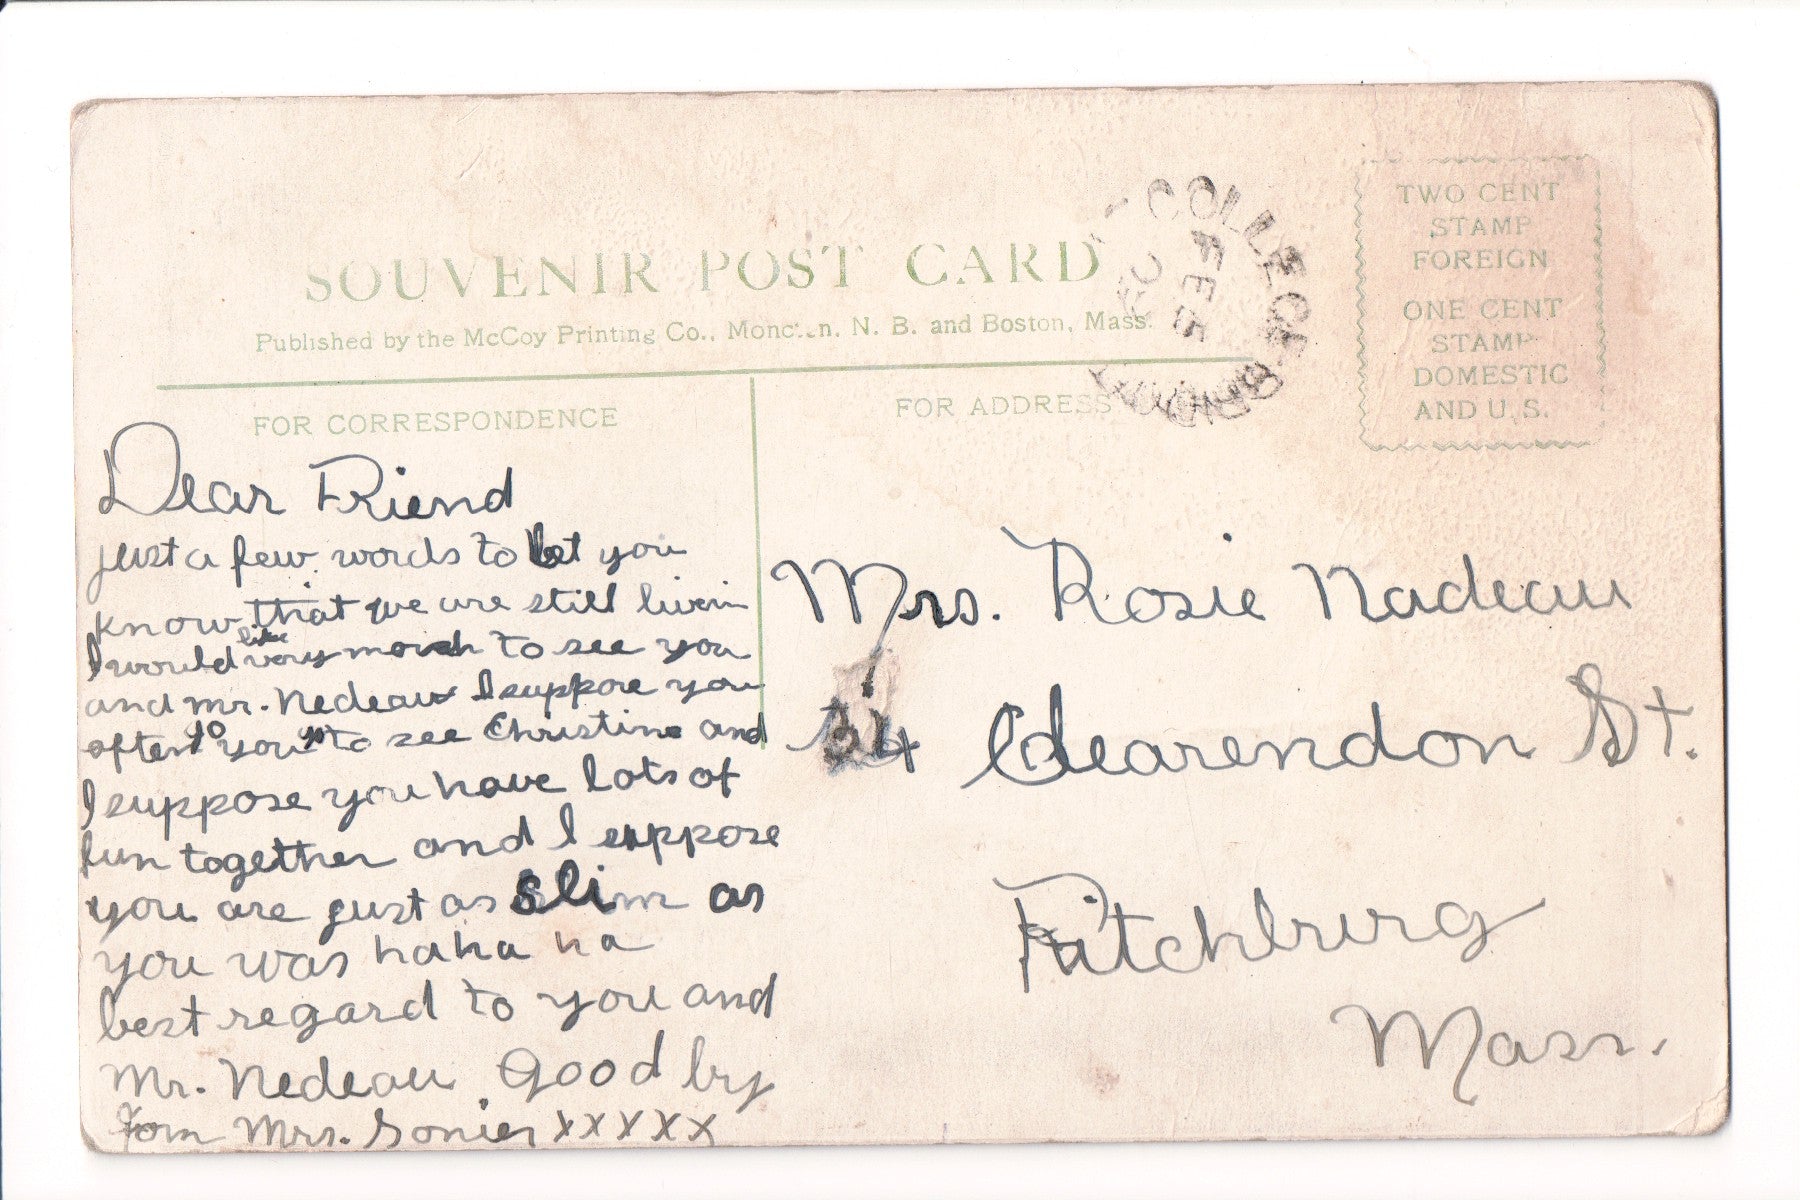 SOUVENIR POST CARD
Published by the McCoy Printing Co., Moncton, N. B. and Boston, Mass.
COLLEGE BRIDGE
FE 5
TWO CENT
STAMP
FOREIGN
ONE CENT
STAMP
DOMESTIC
AND U. S.
FOR CORRESPONDENCE
FOR ADDRESS
Dear Friend
just a few words to let you
know that we are still livein
I would like very moush to see you
and Mr. Nedeau I suppose you
often do you to see Christine and
I suppose you have lots of
fun together and I suppose
you are just as slim as
you was haha ha
best regard to you and
Mr. Nedeau Good by
Form Mrs. Sonier xxxxx
Mrs. Rosie Nadeau
54 Clearendon St.
Fitchburg
Mass.